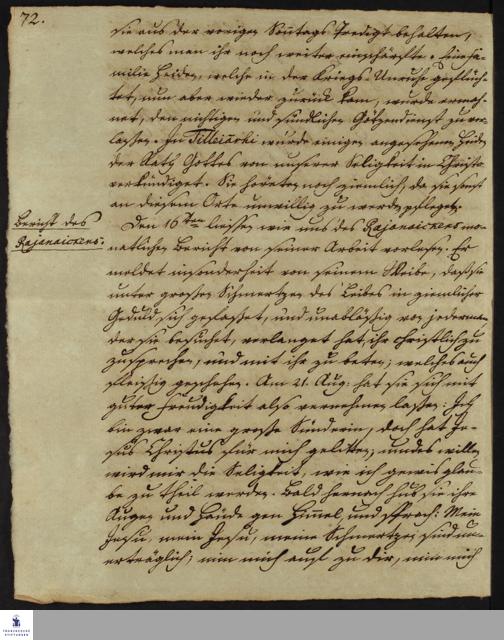 72.
sie aus der vorigen Sontags Predigt behalten,
welches man ihr noch weiter einschärffte. Eine Fa-
milie Heiden, welche in der Kriegs Unruhe geflüch-
tet, nun aber wieder zurück kam, wurde ermah-
net, den nichtigen und sündlichen Götzendienst zu ver-
lassen. In Tilleiarhi wurde einigen angesehenen Heiden
der Rath Gottes von unserer Seligkeit in Christo
verkündiget. Sie höreten noch ziemlich, da sie sonst
an diesem Orte unwillig zu werden pflegen.
Bericht des
Rajanaickens.
Den 16ten liessen wir uns des Rajanaickens mo-
natlichen Bericht von seiner Arbeit vorlesen. Er
meldet insonderheit von seinem Weibe, daß sie
unter grossen Schmertzen des Leibes in ziemlicher
Geduld sich gefasset, und unabläßig von jederman
der sie besuchet, verlanget hat, ihr christlich zu
zusprechen, und mit ihr zu beten; welches auch
fleißig geschehen. Am 21. Aug: hat sie sich mit
guter Freudigkeit also vernehmen lassen: Ich
bin zwar eine grosse Sünderin, doch hat Je-
sus Christus für mich gelitten, und es wille
wird mir die Seligkeit, wie ich gewis glau-
be zu theil werden. Bald hernach hub sie ihre
Augen und Hände gen Himmel, und sprach: Mein
Jesu, mein Jesu, meine Schmertzen sind un-
erträglich; nim mich auf zu dir, nim mich
FRANCKESCHE
STIFTUNGEN